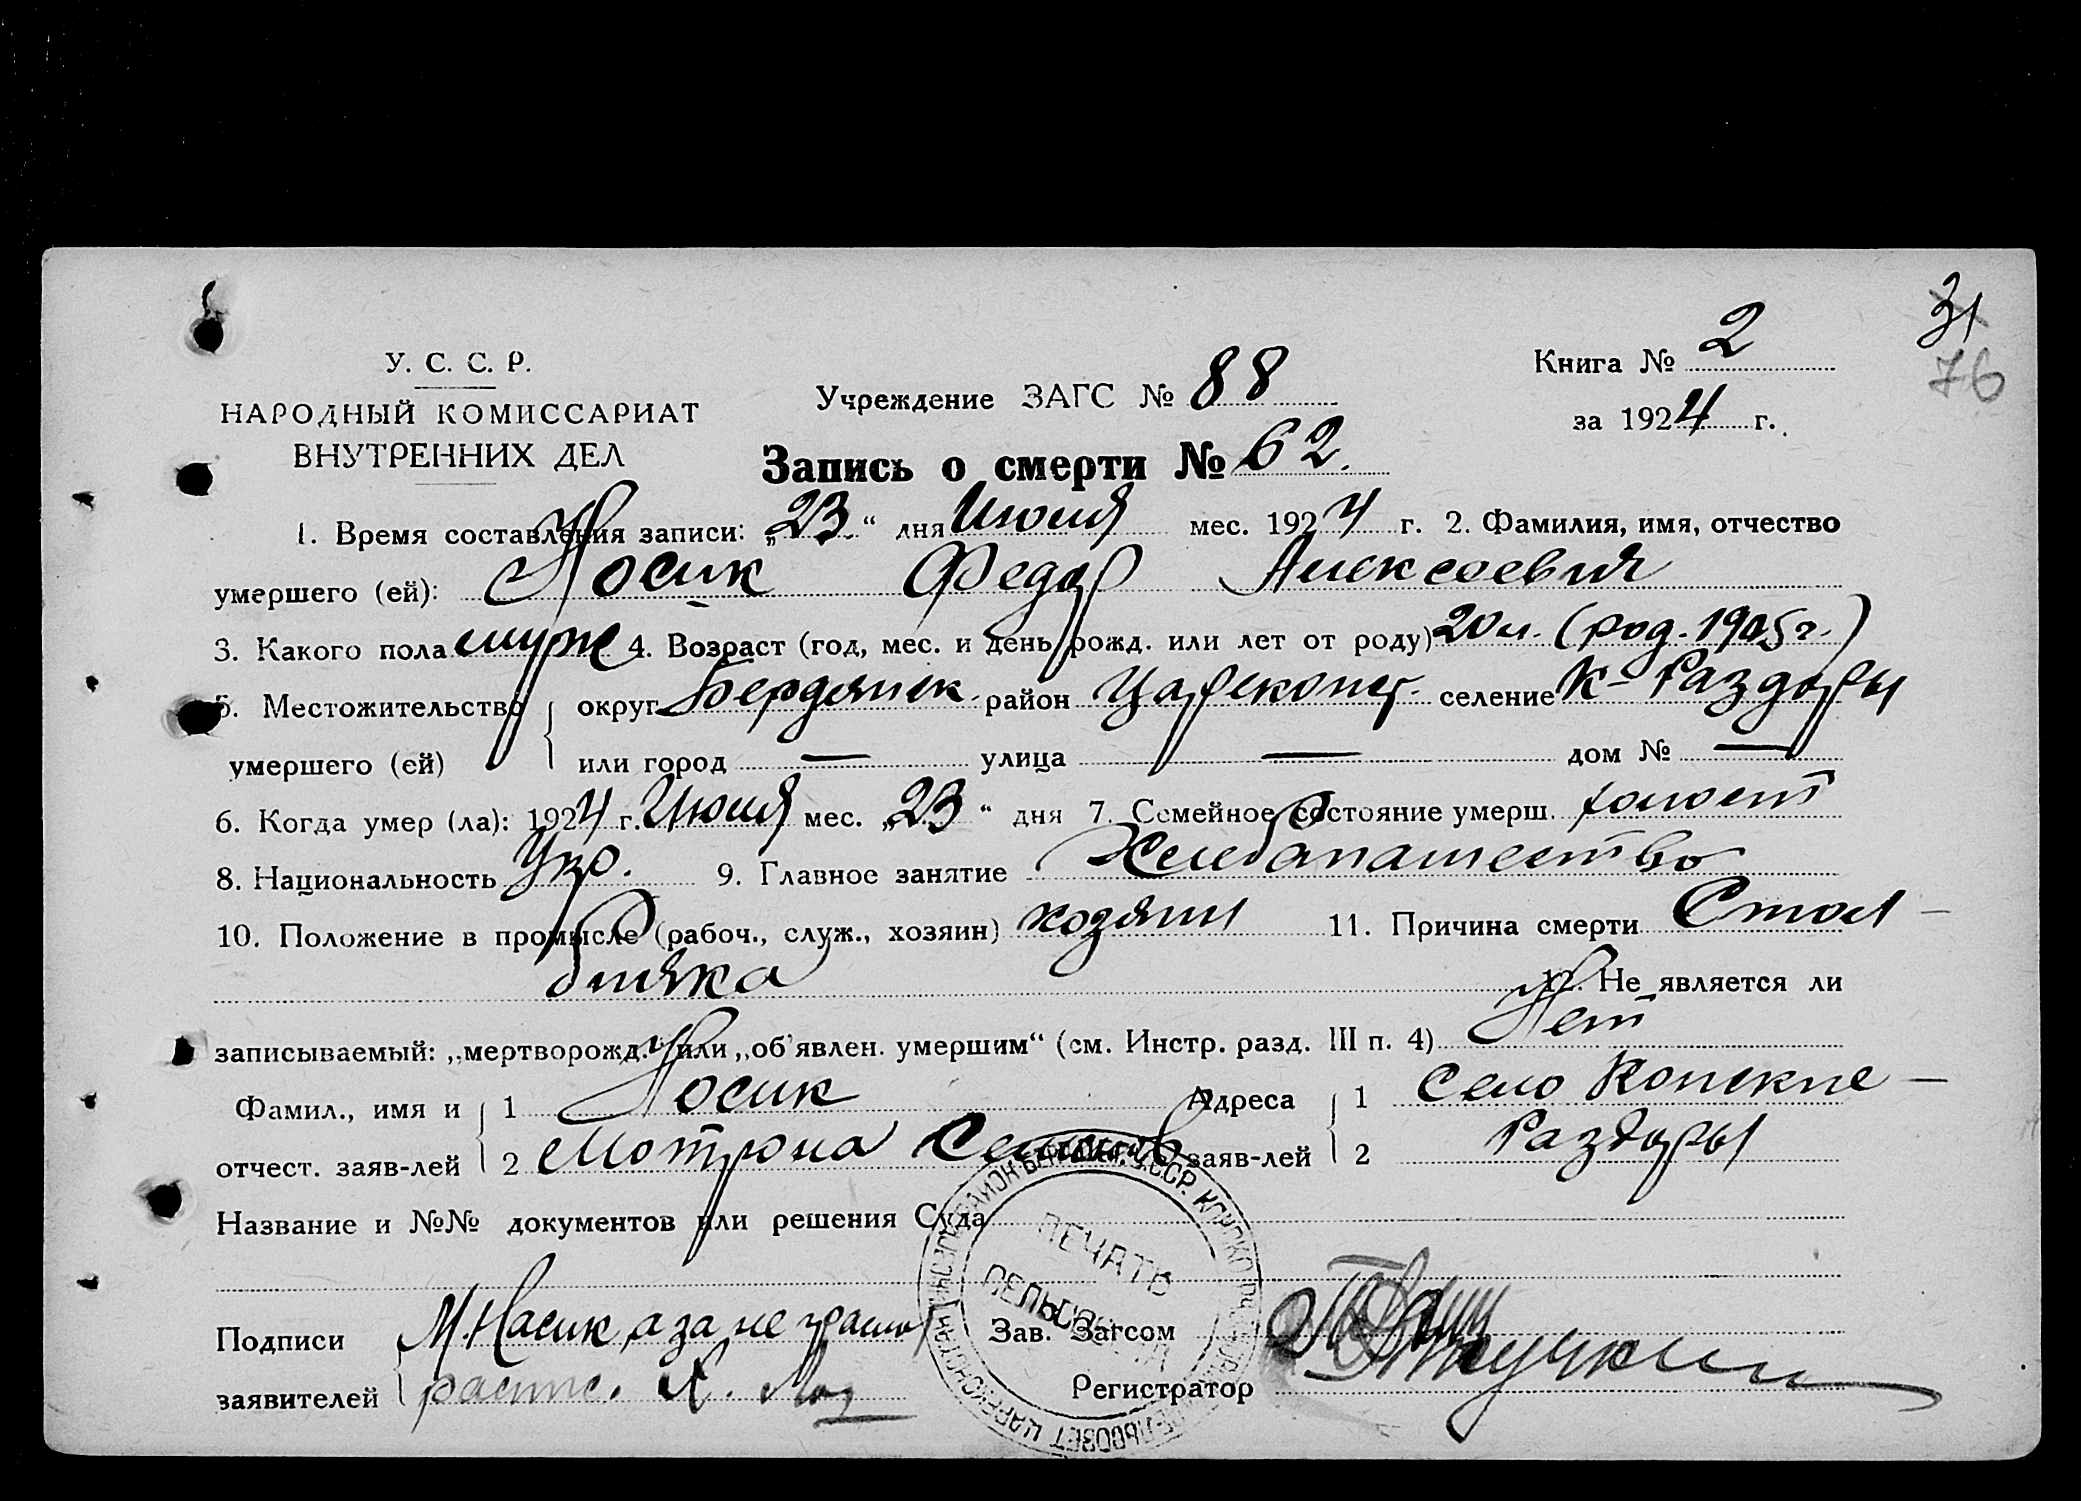 31
76
У. С. С. Р.
НАРОДНЫЙ КОМИССАРИАТ
ВНУТРЕННИХ ДЕЛ
Учреждение ЗАГС № 88
Книга № 2
за 1924 г.
Запись о смерти № 62.
1. Время составления записи: „23“ дня Июля мес. 1924 г. 2. Фамилия, имя, отчество
умершего (ей): Носик Федор Алексеевич
3. Какого пола муж 4. Возраст (год, мес. и день рожд. или лет от роду) 20 л. (род. 1905 г.)
5. Местожительство округ Бердянск. район Цареконст. селение К-Раздоры
умершего (ей) или город — улица — дом № —
6. Когда умер (ла): 1924 г. Июля мес. „23“ дня 7. Семейное состояние умерш. холост
8. Национальность Укр. 9. Главное занятие Хлебапашество
10. Положение в промысле (рабоч., служ., хозяин) хозяин 11. Причина смерти Стол-
бняка 12. Не является ли
записываемый: „мертворожд.“ или „об'явлен. умершим“ (см. Инстр. разд. III п. 4) Нет
Фамил., имя и 1 Носик Адреса 1 Село Конские-
отчест. заяв-лей 2 Мотрона заяв-лей 2 Раздоры
Название и №№ документов или решения Суда
ПЕЧАТЬ
СЕЛЬСОВЕТА
Подписи М. Насик, а за не грам
Зав. Загсом
заявителей распис.
Регистратор